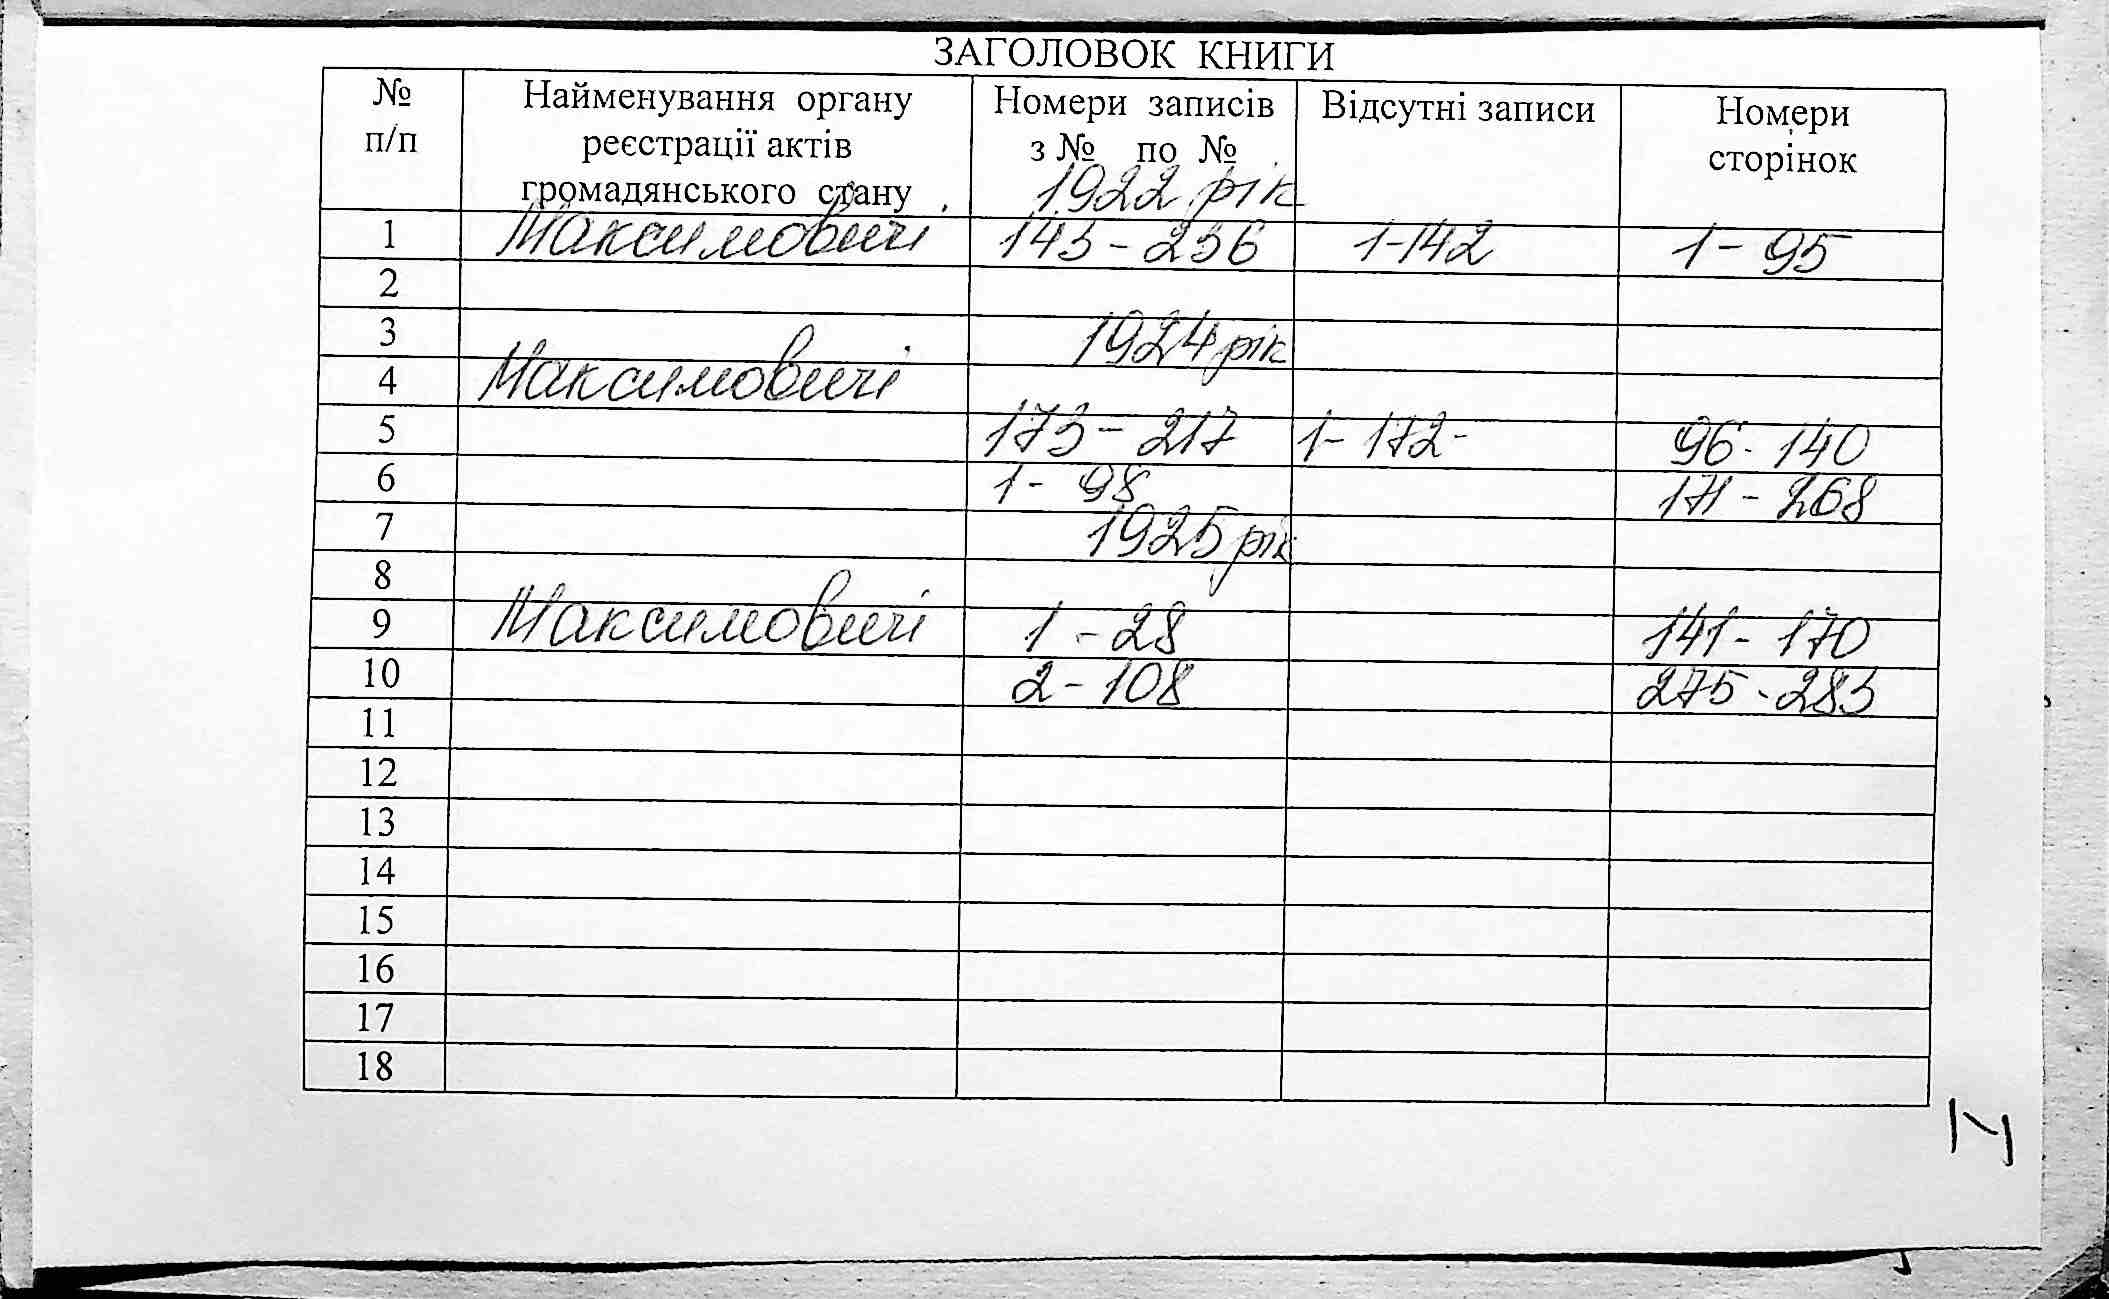 ЗАГОЛОВОК КНИГИ
№ п/п Найменування органу реєстрації актів громадянського стану Номери записів з № по № Відсутні записи Номери сторінок
1922 рік
1 Максимовичі 143-236 1-142 1-95
2
3 1924 рік
4 Максимовичі
5 173-217 1-172- 96-140
6 1-98 171-268
7 1925 рік
8
9 Максимовичі 1-28 141-170
10 2-108 275-283
11
12
13
14
15
16
17
18